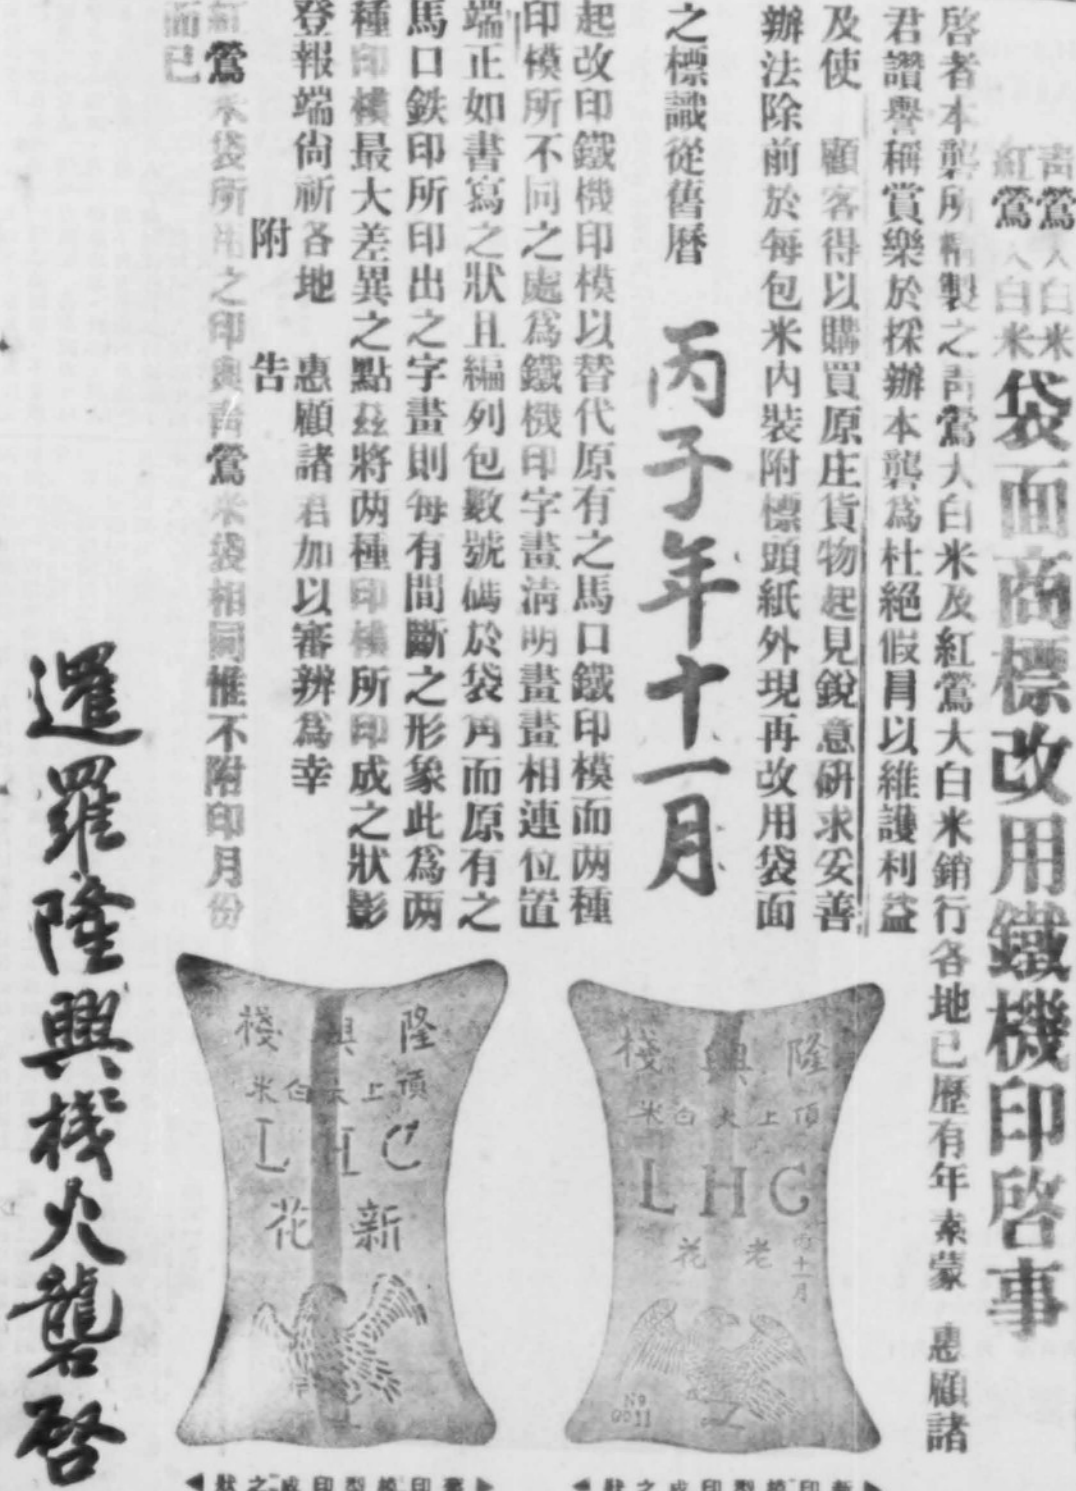 青鶯大白米
紅鶯大白米
袋面商標改用鐵機印啓事
啓者本礱所精製之青鶯大白米及紅鶯大白米銷行各地已歷有年素蒙 惠顧諸
君讚譽稱賞樂於採辦本礱爲杜絕假冒以維護利益
及使 顧客得以購買原庄貨物起見銳意研求妥善
辦法除前於每包米內裝附標頭紙外現再改用袋面
之標識從舊曆 丙子年十一月
起改印鐵機印模以替代原有之馬口鐵印模而两種
印模所不同之處爲鐵機印字畫淸明畫畫相連位置
端正如書寫之狀且編列包數號碼於袋角而原有之
馬口鉄印所印出之字畫則每有間斷之形象此爲两
種印模最大差異之點茲將两種印模所印成之狀影
登報端尙祈各地 惠顧諸君加以審辨爲幸
附 告
紅鶯米袋所印之印與青鶯米袋相同惟不附印月份
而已
暹羅隆興棧火礱啓
隆興棧
頂上大白米
LHC
老花
丙十一月
No
0011
新印鐵型印成之狀
隆興棧
頂上大白米
LHC
新花
印鐵型印成之狀